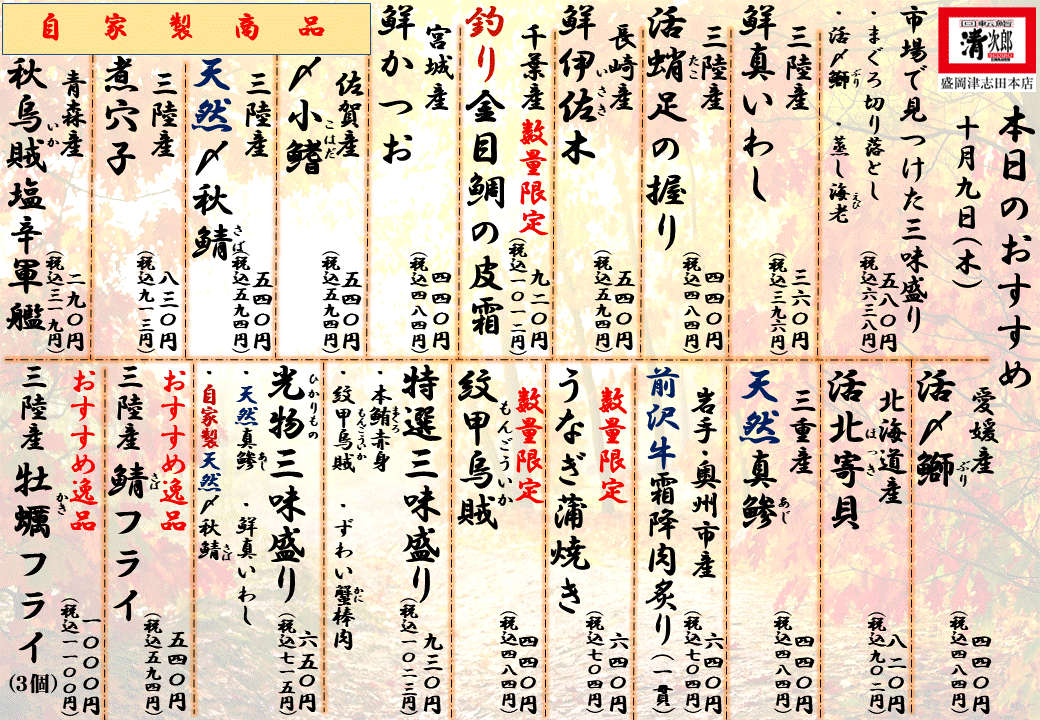 回転鮨
清次郎
盛岡津志田本店
本日のおすすめ
十月九日(木)
市場で見つけた三味盛り
・まぐろ切り落とし
・活〆鰤 ・蒸し海老
ぶり
えび
五八〇円
(税込六三八円)
三陸産
鮮真いわし
三六〇円
(税込三九六円)
三陸産
活蛸足の握り
たこ
四四〇円
(税込四八四円)
長崎産
鮮伊佐木
いさき
五四〇円
(税込五九四円)
千葉産 数量限定
釣り金目鯛の皮霜
九二〇円
(税込一〇一二円)
宮城産
鮮かつお
四四〇円
(税込四八四円)
自家製商品
佐賀産
〆小鰭
こはだ
五四〇円
(税込五九四円)
三陸産
天然〆秋鯖
さば
五四〇円
(税込五九四円)
三陸産
煮穴子
八三〇円
(税込九一三円)
青森産
秋烏賊塩辛軍艦
いか
二九〇円
(税込三一九円)
愛媛産
活〆鰤
ぶり
四四〇円
(税込四八四円)
北海道産
活北寄貝
ほっき
八二〇円
(税込九〇二円)
三重産
天然真鯵
あじ
四四〇円
(税込四八四円)
岩手・奥州市産
前沢牛霜降肉炙り(一貫)
六四〇円
(税込七〇四円)
数量限定
うなぎ蒲焼き
六四〇円
(税込七〇四円)
数量限定
紋甲烏賊
もんごういか
四四〇円
(税込四八四円)
特選三味盛り
・本鮪赤身
まぐろ
・紋甲烏賊 ・ずわい蟹棒肉
もんごういか
かに
九三〇円
(税込一〇二三円)
光物三味盛り
ひかりもの
・天然真鯵 ・鮮真いわし
あじ
・自家製天然〆秋鯖
さば
六五〇円
(税込七一五円)
おすすめ逸品
三陸産 鯖フライ
さば
五四〇円
(税込五九四円)
おすすめ逸品
三陸産 牡蠣フライ(3個)
かき
一〇〇〇円
(税込一一〇〇円)